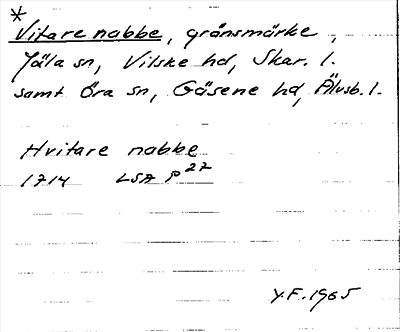 *
Vitare nabbe, gränsmärke,
Jäla sn, Vilske hd, Skar. l.
samt Öra sn, Gäsene hd, Älvsb. l.
Hvitare nabbe
1714 LSA P 27
Y.F. 1965